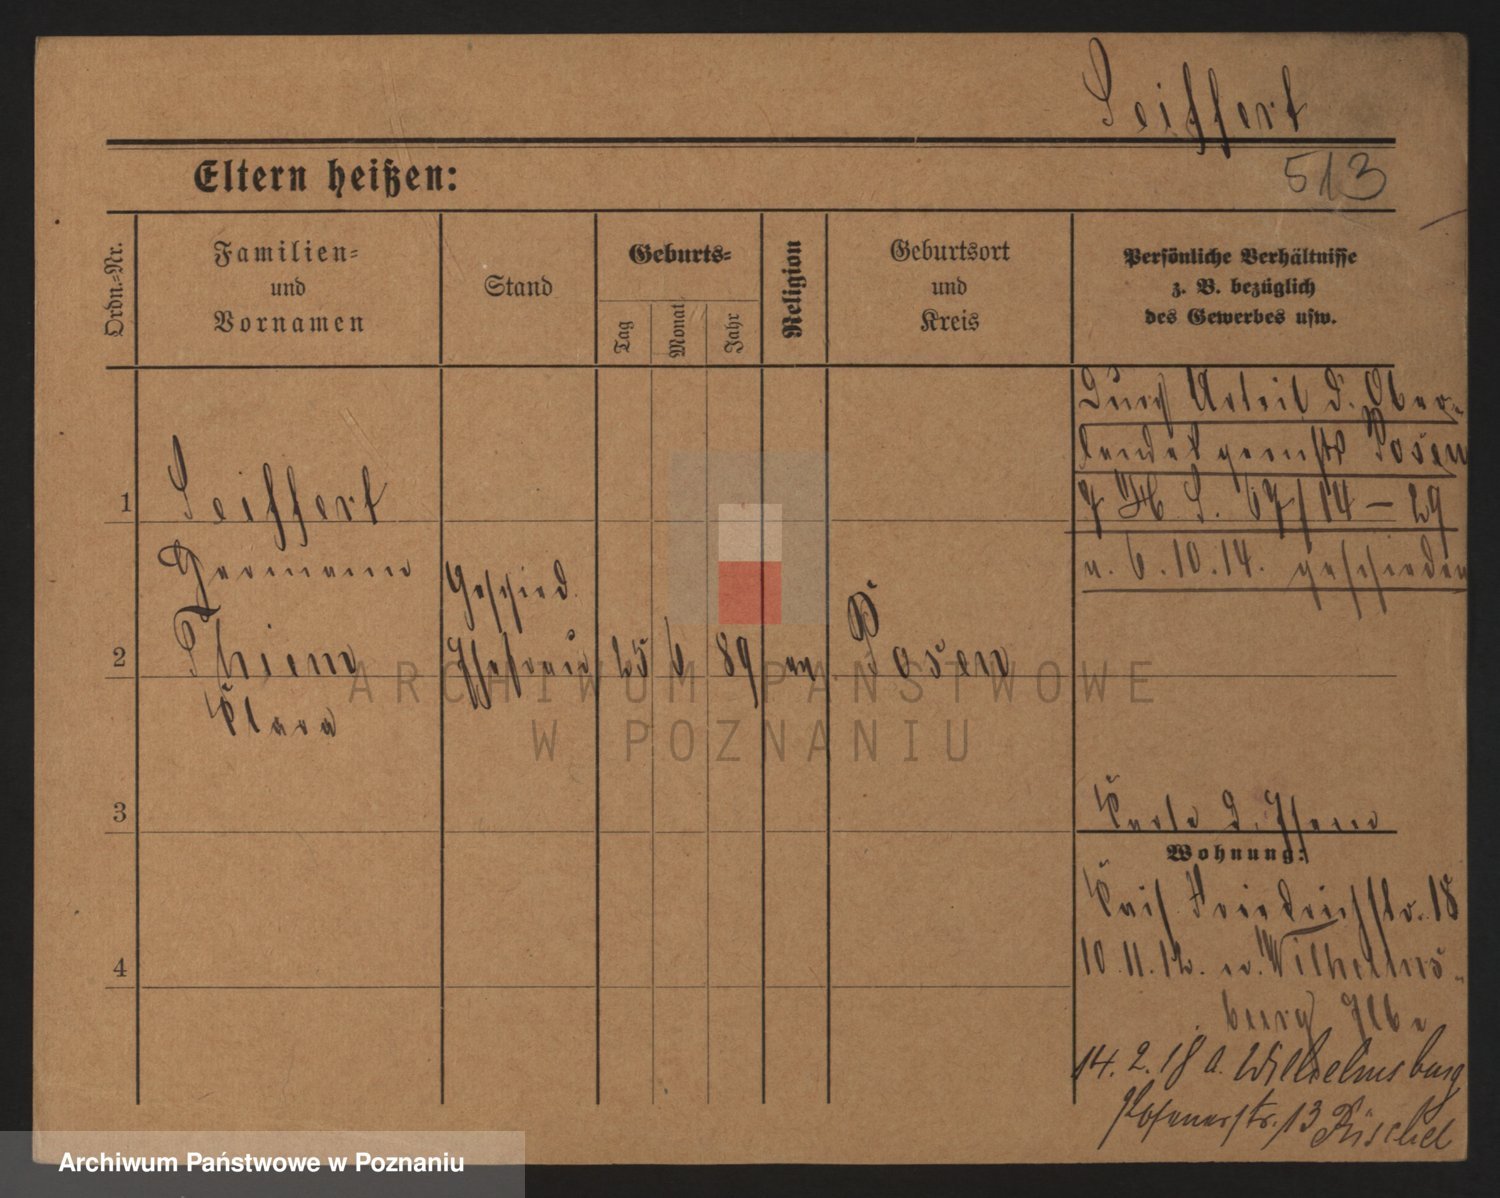 Seiffert
Eltern heißen:
513
Ordn.=Nr.
Familien=
und
Vornamen
Stand
Geburts=
Tag
Monat
Jahr
Religion
Geburtsort
und
Kreis
Persönliche Verhältnisse
z. B. bezüglich
des Gewerbes usw.
Durch Urteil d. Ober-
landesgerichts Posen
67/14 – 29
v. 6.10.14. geschieden
1
Seiffert
Hermann
2
Thiem
Clara
Geschied.
Ehefrau
25
6
89
ev
Posen
3
Karte d. Ehem
Wohnung:
Kais Friedrichstr. 18
4
10.11.12. n. Wilhelms-
burg Elbe
14.2.18 a. Wilhelmsburg
Posenerstr. 13
ARCHIWUM PAŃSTWOWE
W POZNANIU
Archiwum Państwowe w Poznaniu